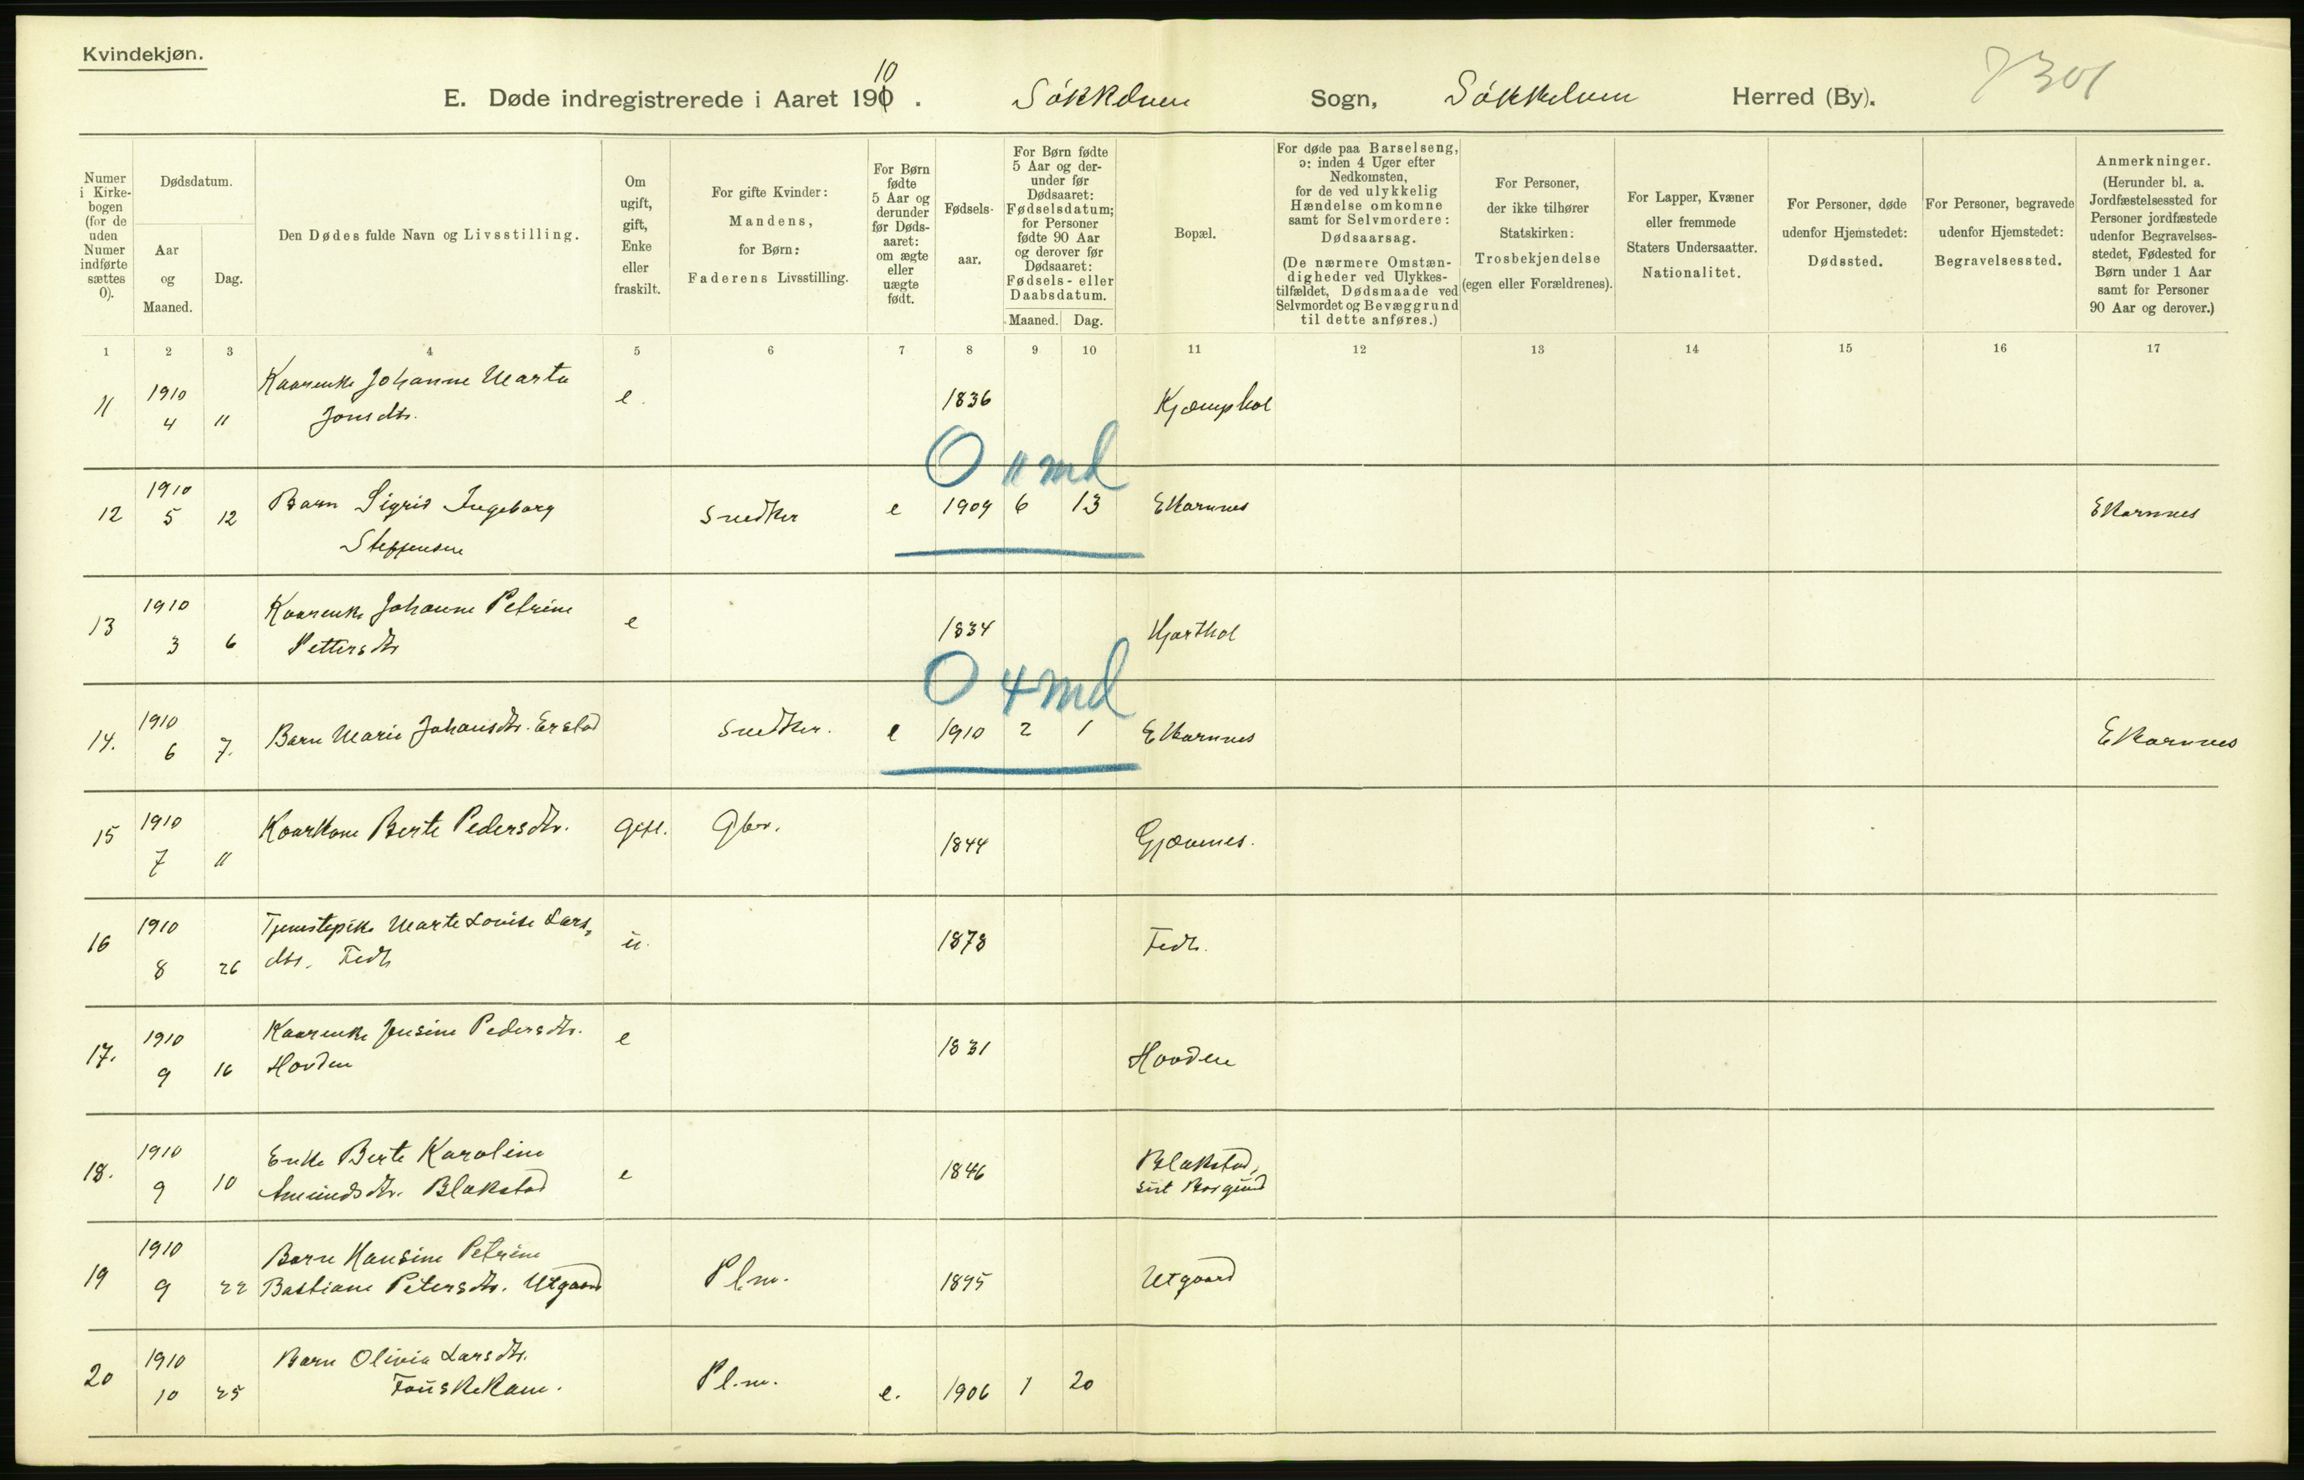 Kvindekjøn.
E. Døde indregistrerede i Aaret 1910. Søkkelven Sogn, Søkkelven Herred (By).
7301
Numer i Kirkebogen (for de uden Numer indførte sættes 0).
Dødsdatum.
Aar og Maaned.
Dag.
Den Dødes fulde Navn og Livsstilling.
Om ugift, gift, Enke eller fraskilt.
For gifte Kvinder: Mandens, for Børn: Faderens Livsstilling.
For Børn fødte 5 Aar og derunder før Dødsaaret: om ægte eller uægte født.
Fødselsaar.
For Børn fødte 5 Aar og derunder før Dødsaaret: Fødselsdatum; for Personer fødte 90 Aar og derover før Dødsaaret: Fødsels- eller Daabsdatum.
Maaned. Dag.
Bopæl.
For døde paa Barselseng, ɔ: inden 4 Uger efter Nedkomsten, for de ved ulykkelig Hændelse omkomne samt for Selvmordere: Dødsaarsag. (De nærmere Omstændigheder ved Ulykkestilfældet, Dødsmaade ved Selvmordet og Bevæggrund til dette anføres.)
For Personer, der ikke tilhører Statskirken: Trosbekjendelse (egen eller Forældrenes).
For Lapper, Kvæner eller fremmede Staters Undersaatter. Nationalitet.
For Personer, døde udenfor Hjemstedet: Dødssted.
For Personer, begravede udenfor Hjemstedet: Begravelsessted.
Anmerkninger. (Herunder bl. a. Jordfæstelsessted for Personer jordfæstede udenfor Begravelsesstedet, Fødested for Børn under 1 Aar samt for Personer 90 Aar og derover.)
1 2 3 4 5 6 7 8 9 10 11 12 13 14 15 16 17
11 1910 4 11 Kaarenke Johanne Marta Jonsdtr. e. 1836 Kjæmphol
0 11 md
12 1910 5 12 Barn Sigrid Ingeborg Steffensen Snedker e 1909 6 13 Ekornnes Ekornnes
13 1910 3 6 Kaarenke Johanne Petrine Pettersdtr e 1834 Hjorthol
0 4 md
14. 1910 6 7. Barn Marie Johansdtr. Erstad Snedker. e 1910 2 1 Ekornnes Ekornnes
15 1910 7 11 Kaarkone Berte Pedersdtr. Gift. Gbr. 1844 Gjævnes.
16 1910 8 26 Tjenestepike Marte Louise Larsdtr. Fedt u. 1878 Fedt.
17. 1910 9 16 Kaarenke Jensine Pedersdtr. Hovden e 1831 Hovden
18. 1910 9 10 Enke Berte Karoline Amundsdtr. Blakstad e 1846 Blakstad, Borgund
19 1910 9 22 Barn Hansine Petrine Bastiane Petersdtr. Utgaard Pl.m. 1895 Utgaard
20 1910 10 25 Barn Olivia Larsdtr. Fauskekam. Pl.m. e. 1906 1 20